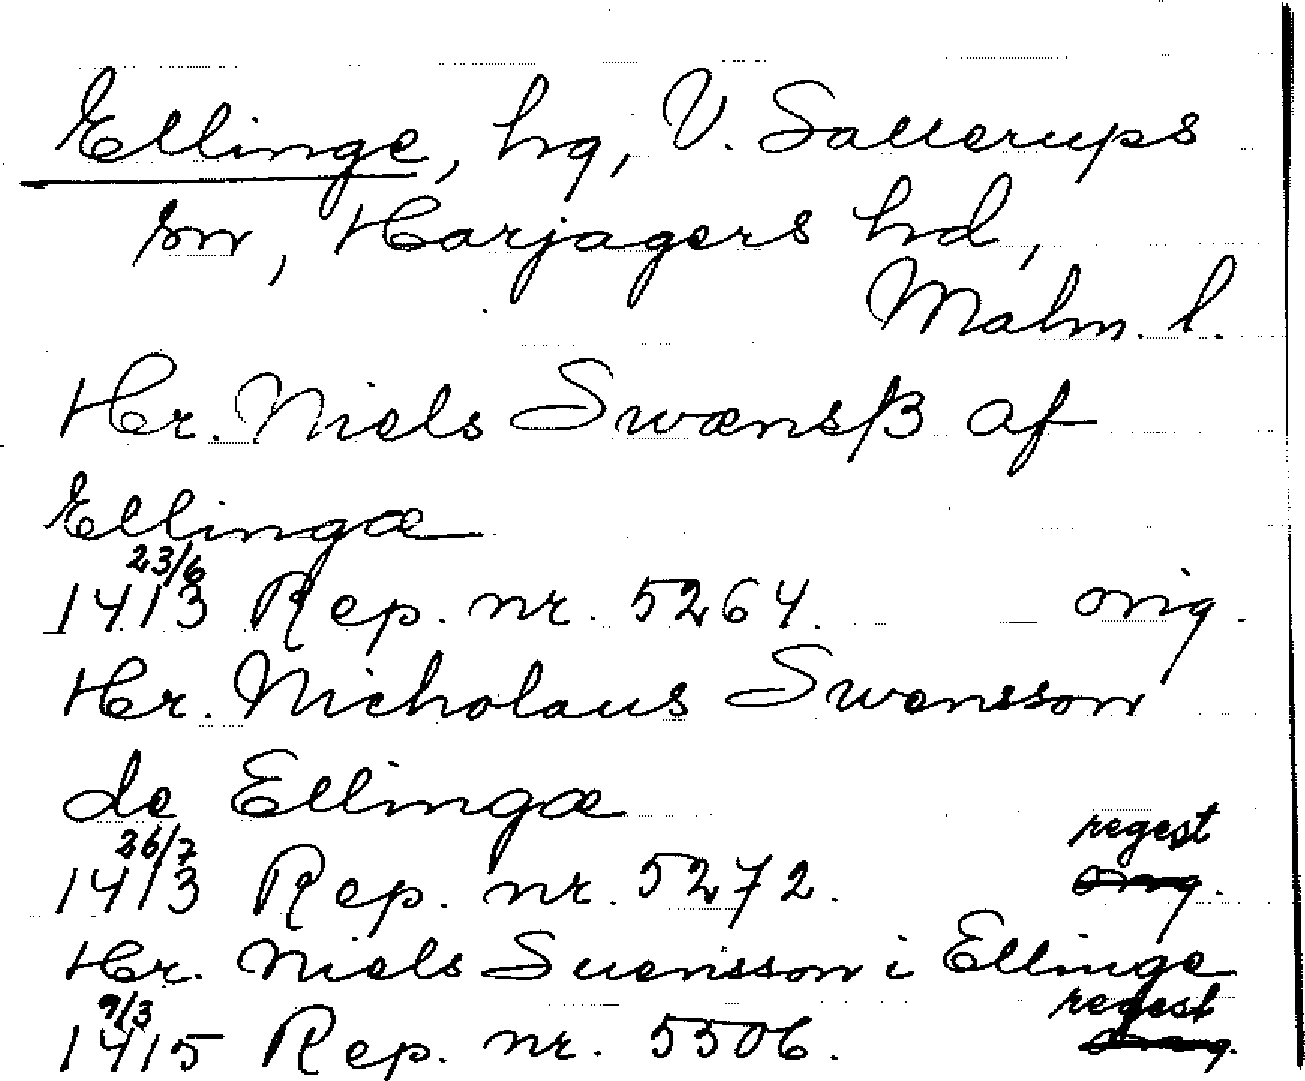 Ellinge, hg, V. Sallerups
sn, Harjagers hd,
Malm. l.
Hr. Niels Swænsß af
Ellingæ
23/6
1413 Rep. nr. 5264. orig.
Hr. Nicholaus Swensson
de Ellingæ
26/7 regest
1413 Rep. nr. 5272. orig.
Hr. Niels Suensson i Ellinge
9/3 regest
1415 Rep. nr. 5506. orig.